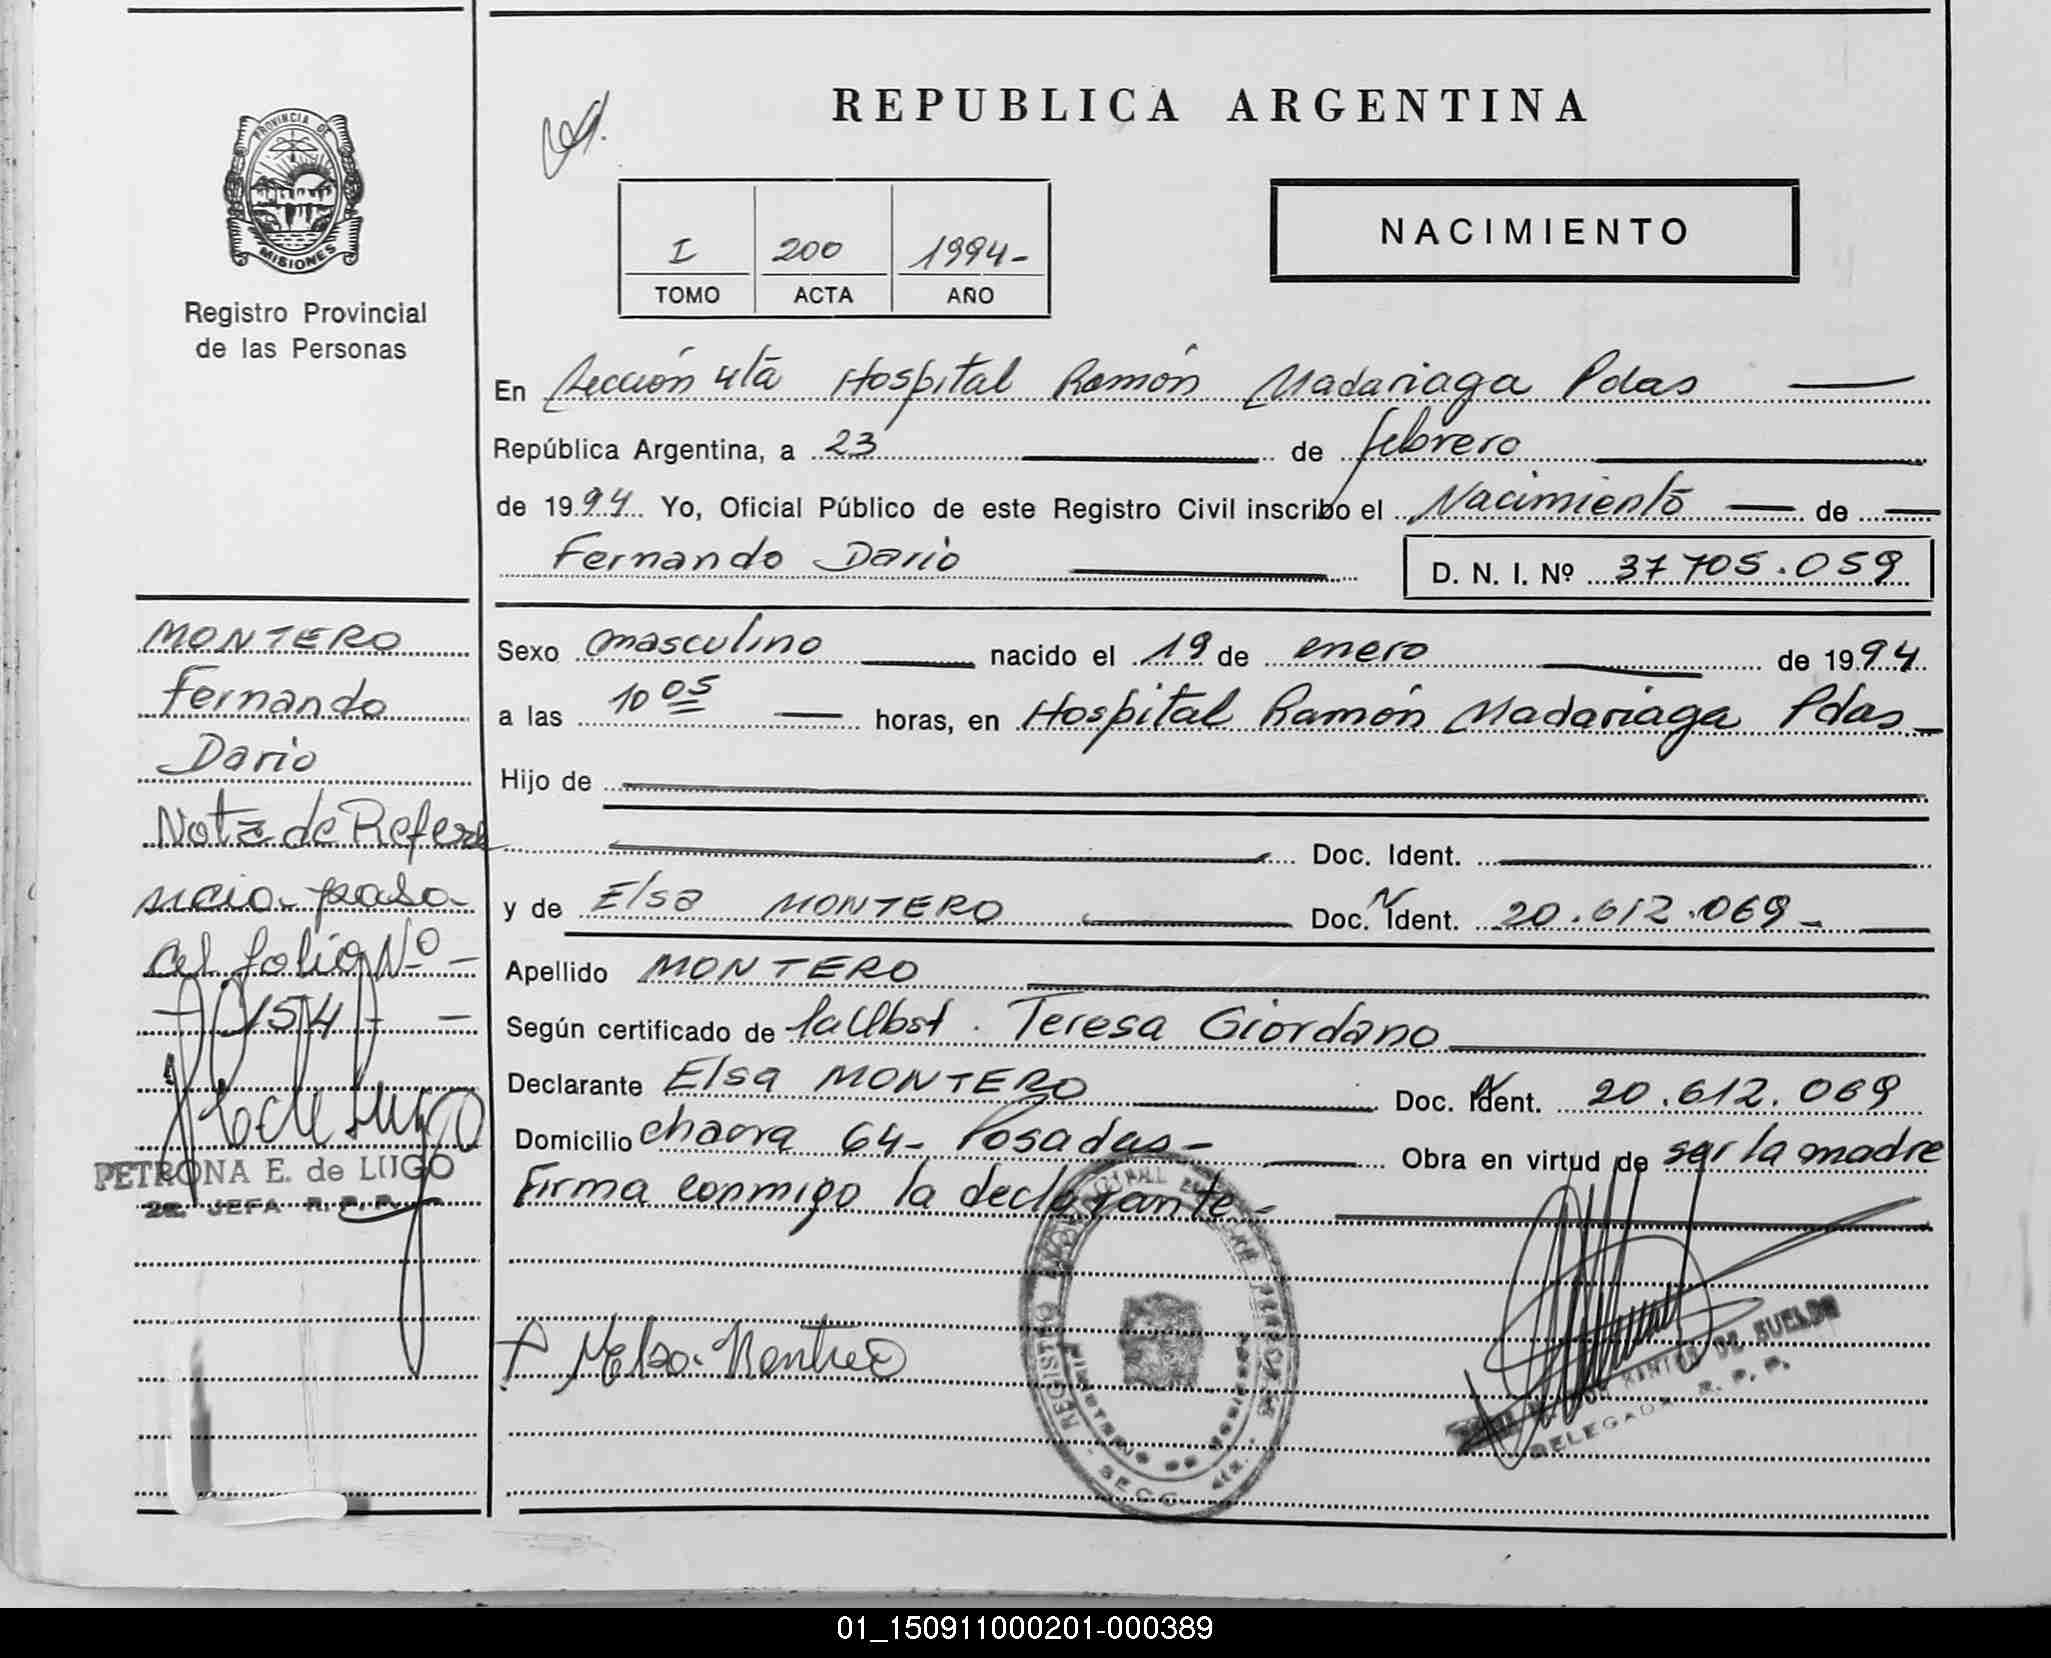 REPUBLICA ARGENTINA
PROVINCIA DE
MISIONES
Registro Provincial
de las Personas
I 200 1994-
TOMO ACTA AÑO
NACIMIENTO
En Sección 4ta Hospital Ramón Madariaga Pdas
República Argentina, a 23 de febrero
de 1994 Yo, Oficial Público de este Registro Civil inscribo el Nacimiento de
Fernando Dario D. N. I. Nº 37705.059
MONTERO
Fernando
Dario
Nota de Refere
ncia- paso-
al folio Nº -
- 154 - -
PETRONA E. de LUGO
2a. JEFA R. P. P.
Sexo masculino nacido el 19 de enero de 1994
a las 10 05 horas, en Hospital Ramón Madariaga Pdas
Hijo de
Doc. Ident.
y de Elsa MONTERO Doc. Ident. 20.612.069-
Apellido MONTERO
Según certificado de la Obst. Teresa Giordano
Declarante Elsa MONTERO Doc. Ident. 20.612.069
Domicilio chacra 64- Posadas- Obra en virtud de ser la madre
Firma conmigo la declarante-
REGISTRO
SECC. 4ta.
DE SUELDO
DELEGADA R. P. P.
01_150911000201-000389